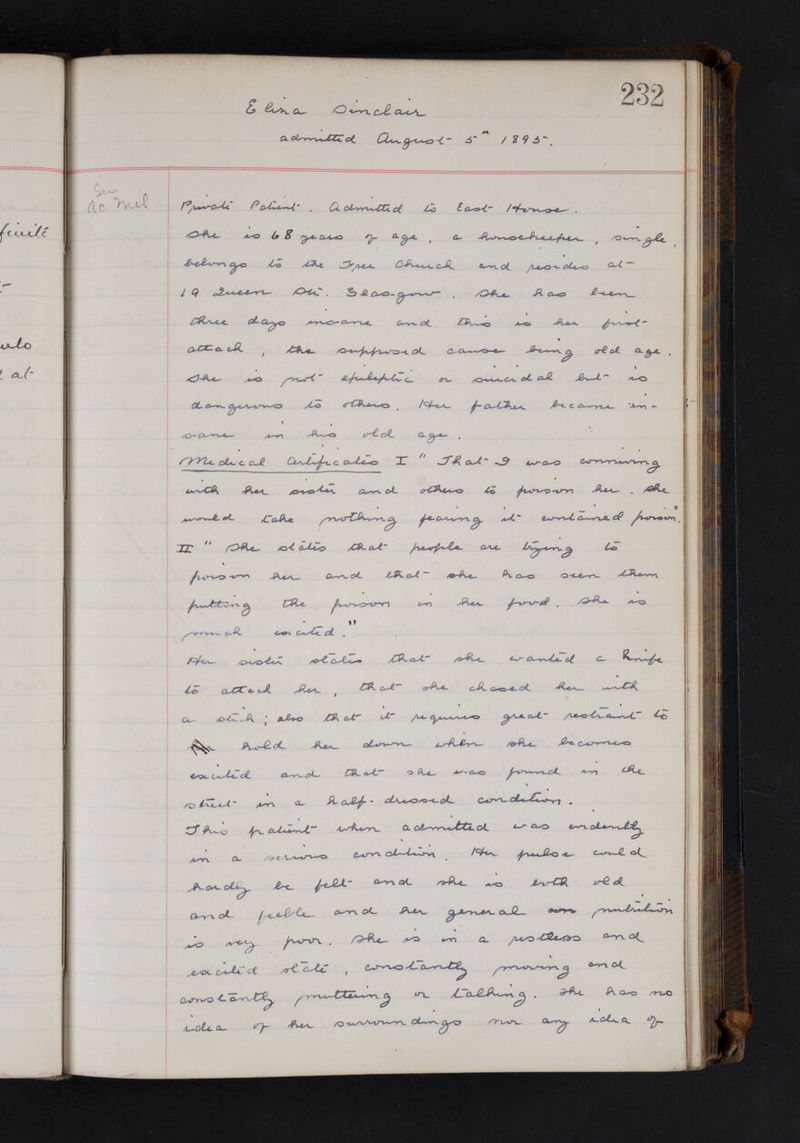 232
Eliza Sinclair
admitted August 5th 1895.
Sen
ac Mel
Private Patient. Admitted to East House.
She is 68 years of age, a housekeeper, single,
belongs to the Free Church and resides at
19 Queen Str. Glasgow. She has been
three days insane and this is her first
attack, the supposed cause being old age.
She is not epileptic or suicidal but is
dangerous to others. Her father became in-
sane in his old age.
Medical Certificates I "That I was conniving
with her sister and others to poison her. She
would take nothing fearing it contained poison".
II "She states that people are trying to
poison her and that she has seen them
putting the poison in her food. She is
much excited."
Her sister states that she wanted a knife
to attack her, that she chased her with
a stick; also that it requires great restraint to
hold her down when she becomes
excited and that she was found in the
street in a half-dressed condition.
This patient when admitted was evidently
in a serious condition. Her pulse could
hardly be felt and she is both old
and feeble and her general nutrition
is very poor. She is in a restless and
excited state, constantly moving and
constantly muttering or talking. She has no
idea of her surroundings nor any idea of